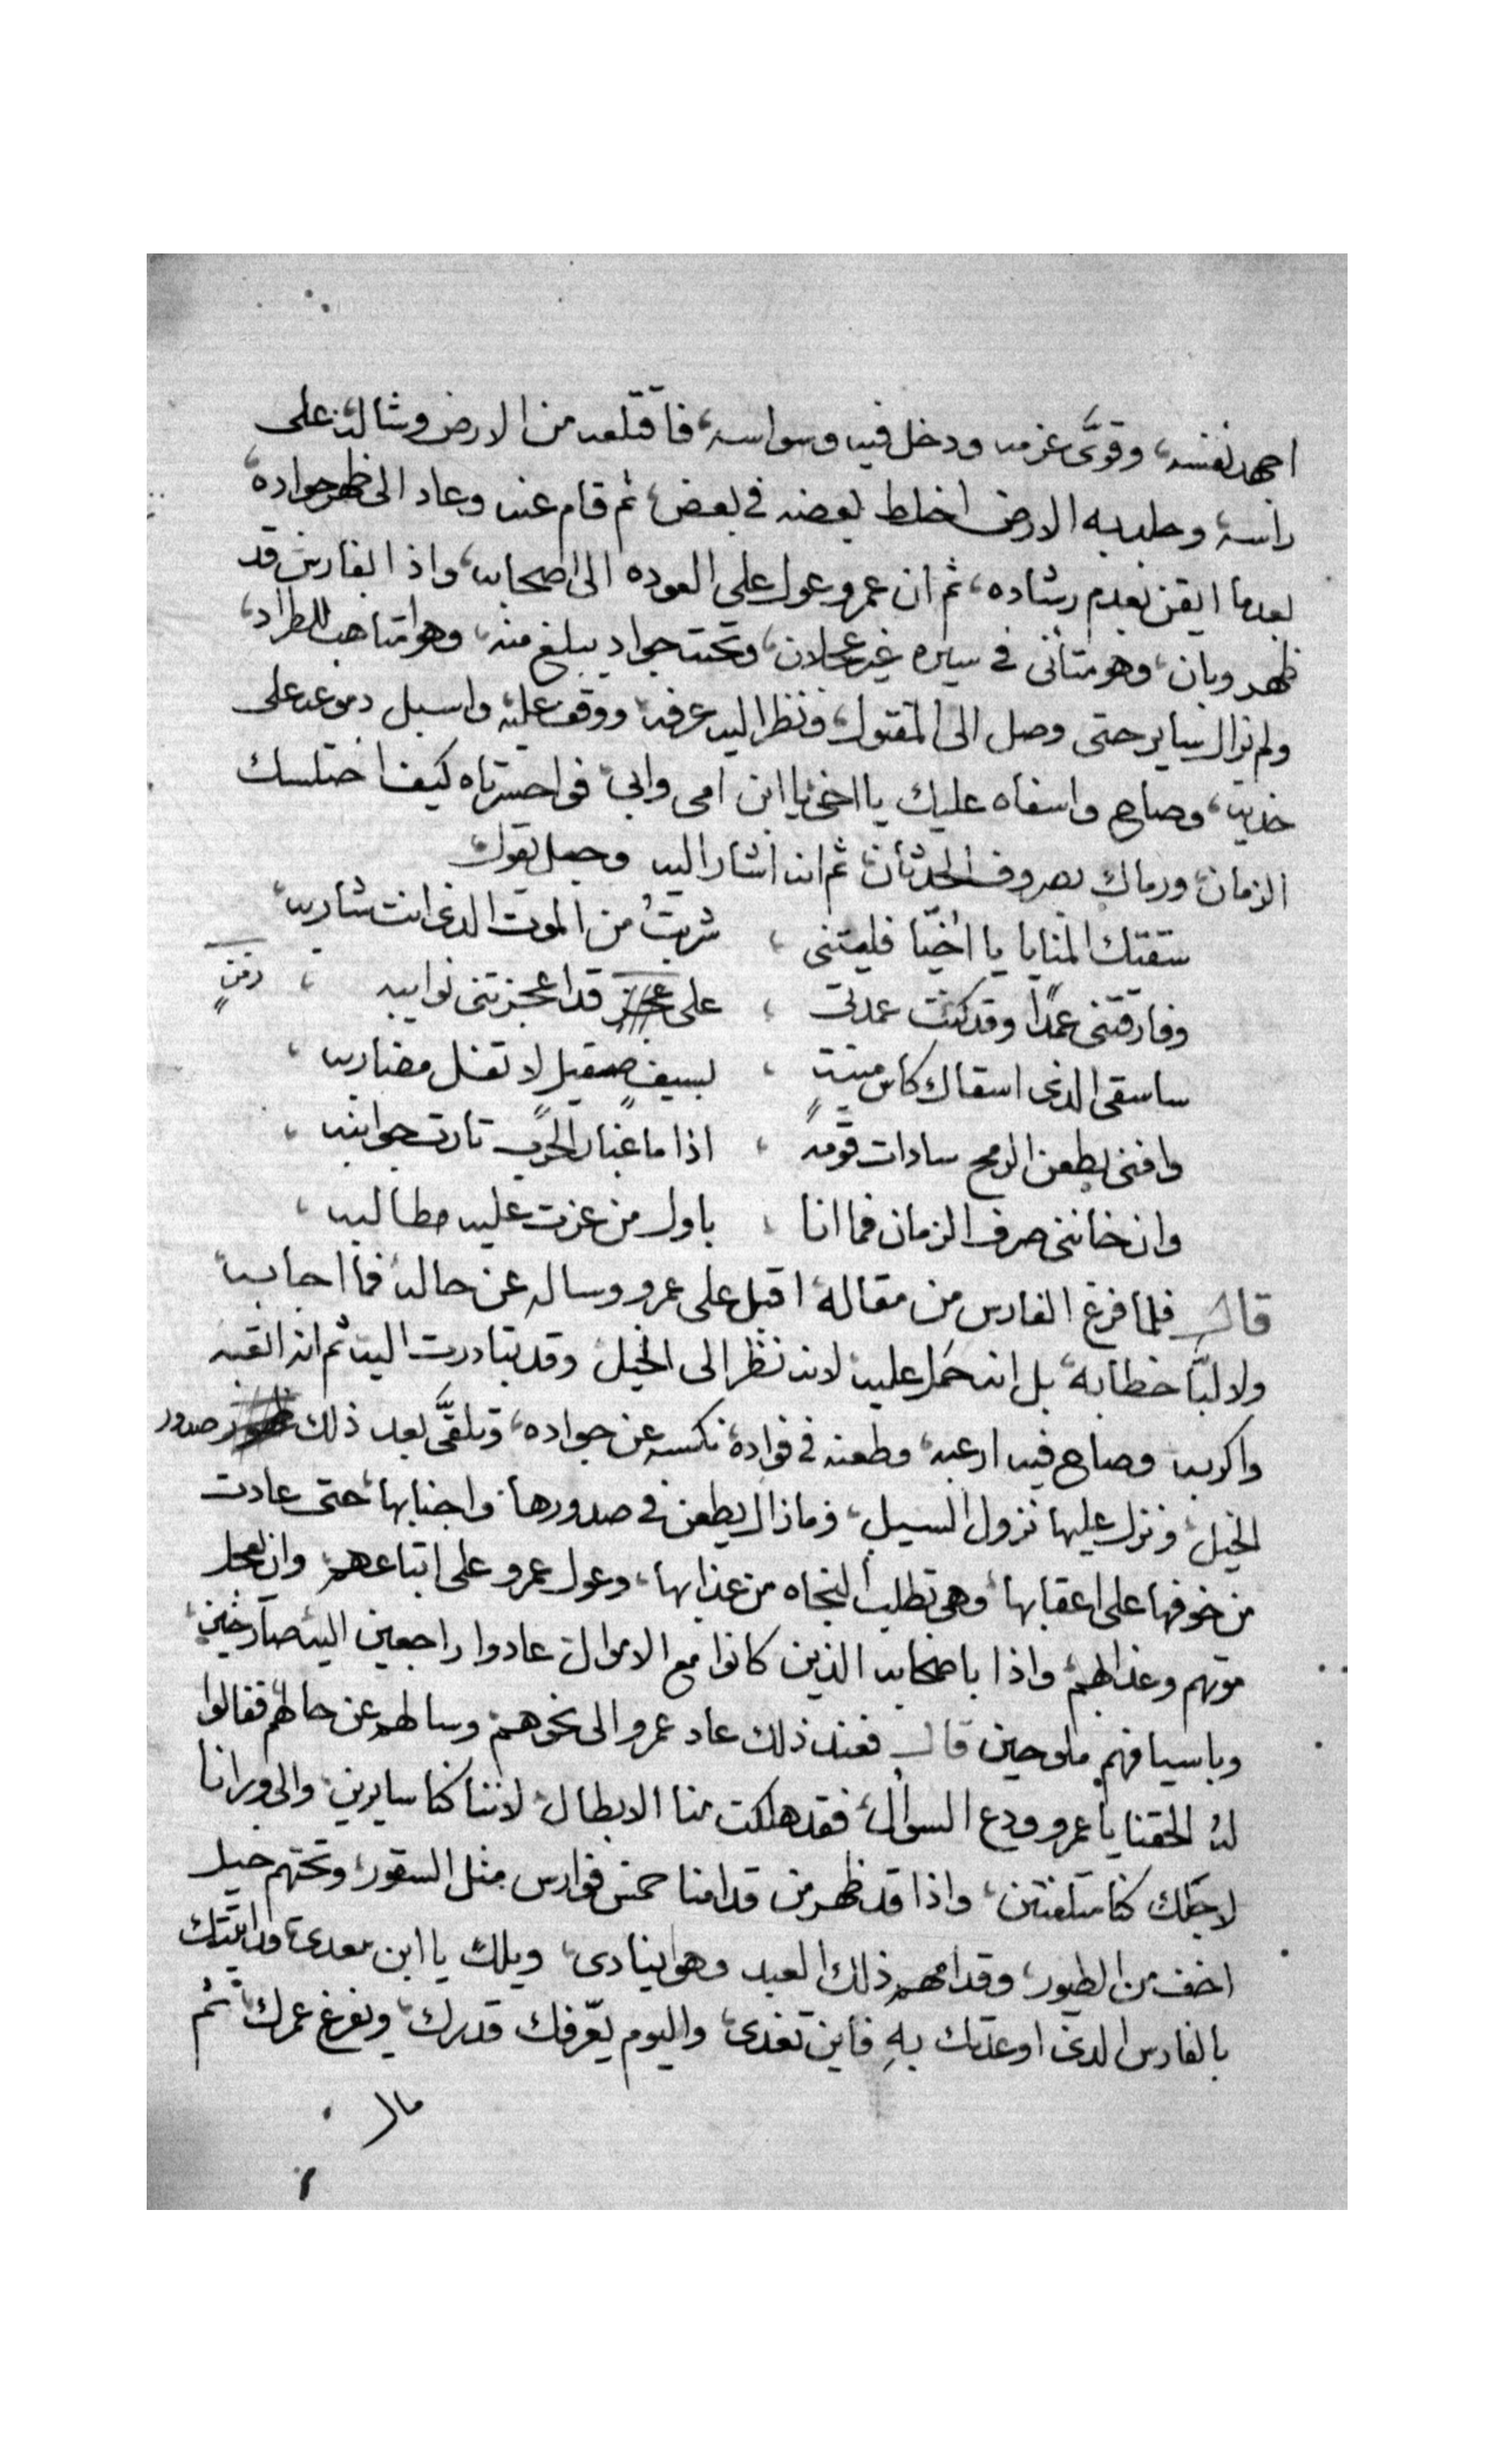 اجهد نفسه، وقوَّى عزمه ودخل فيه وسواسه، فاقتلعه من الارض وشاله على
راسه، وجلد به الارض اخلط بعضه في بعض، ثم قام عنه وعاد الى ظهر جواده،
بعدما ايقن بعدم رشاده، ثم ان عمرو عول على العوده الى اصحابه، واذا الفارس قد
ظهر وبان، وهو متأنى في سيره غير عجلان، وتحته جواد يبلغ منه، وهو متاهب للطراد،
ولم يزال ساير حتى وصل الى المقتول، ونظر اليه عرفه، ووقف عليه واسبل دموعه على
خديه، وصاح واسفاه عليك يا اخى يا ابن امى وابى، فواحسرتاه كيف اختلسك
الزمان، ورماك بصروف الحدثان، ثم انه اشار اليه وجعل يقول
سقتك المنايا يا اخيّا فليتنى ، شربتُ من الموت الدى انت شاربه،
وفارقتنى عمدًا وقد كنت عمدتى ، على قد اعجزتنى نوايبه ، زمنٍ
ساسقى الدى اسقاك كاس منيةٍ ، بسيفٍ صقيلٍ لا تفل مضاربه ،
وافنى بطعن الرمح سادات قومه ، اذا ما غبار الحرب ثارت جوانبه ،
وان خاننى صرف الزمان فما انا ، باول من عزت عليه مطالبه ،
قال فلما فرغ الفارس من مقاله، اقبل على عمرو وساله عن حاله، فما اجابه،
ولا لبّا خطابه، بل انه حمل عليه، لانه نظر الى الخيل، وقد تبادرت اليه، ثم انه اتعبه
واكربه وصاح فيه ارعبه، وطعنه في فواده، نكسه عن جواده، وتلقَّى بعد ذلك صدور
الخيل، ونزل عليها نزول السيل، وما زال يطعن في صدورها، واجنابها، حتى عادت
من خوفها على اعقابها، وهى تطلب النجاه من عذابها، وعول عمرو على اتباعهم، وان يعجل
موتهم وعذابهم، واذا باصحابه الذين كانوا مع الاموال، عادوا راجعين اليه صارخين،
وباسيافهم ملوحين قال فعند ذلك عاد عمرو الى نحوهم، وسالهم عن حالهم، فقالوا
له الحقنا يا عمرو ودع السوال، فقد هلكت منا الابطال، لاننا كنا سايرين، والى ورانا
لاجلك كنا متلفتين، واذا قد ظهر من قدامنا خمس فوارس مثل السقور، وتحتهم خيل
اخف من الطيور، وقدامهم ذلك العبد وهو ينادى، ويلك يا ابن معدى، قد اتيتك
بالفارس الدى اوعدتك بهِ فاين تغدى، واليوم يعّرفك قدرك، ويفرغ عمرك، ثم